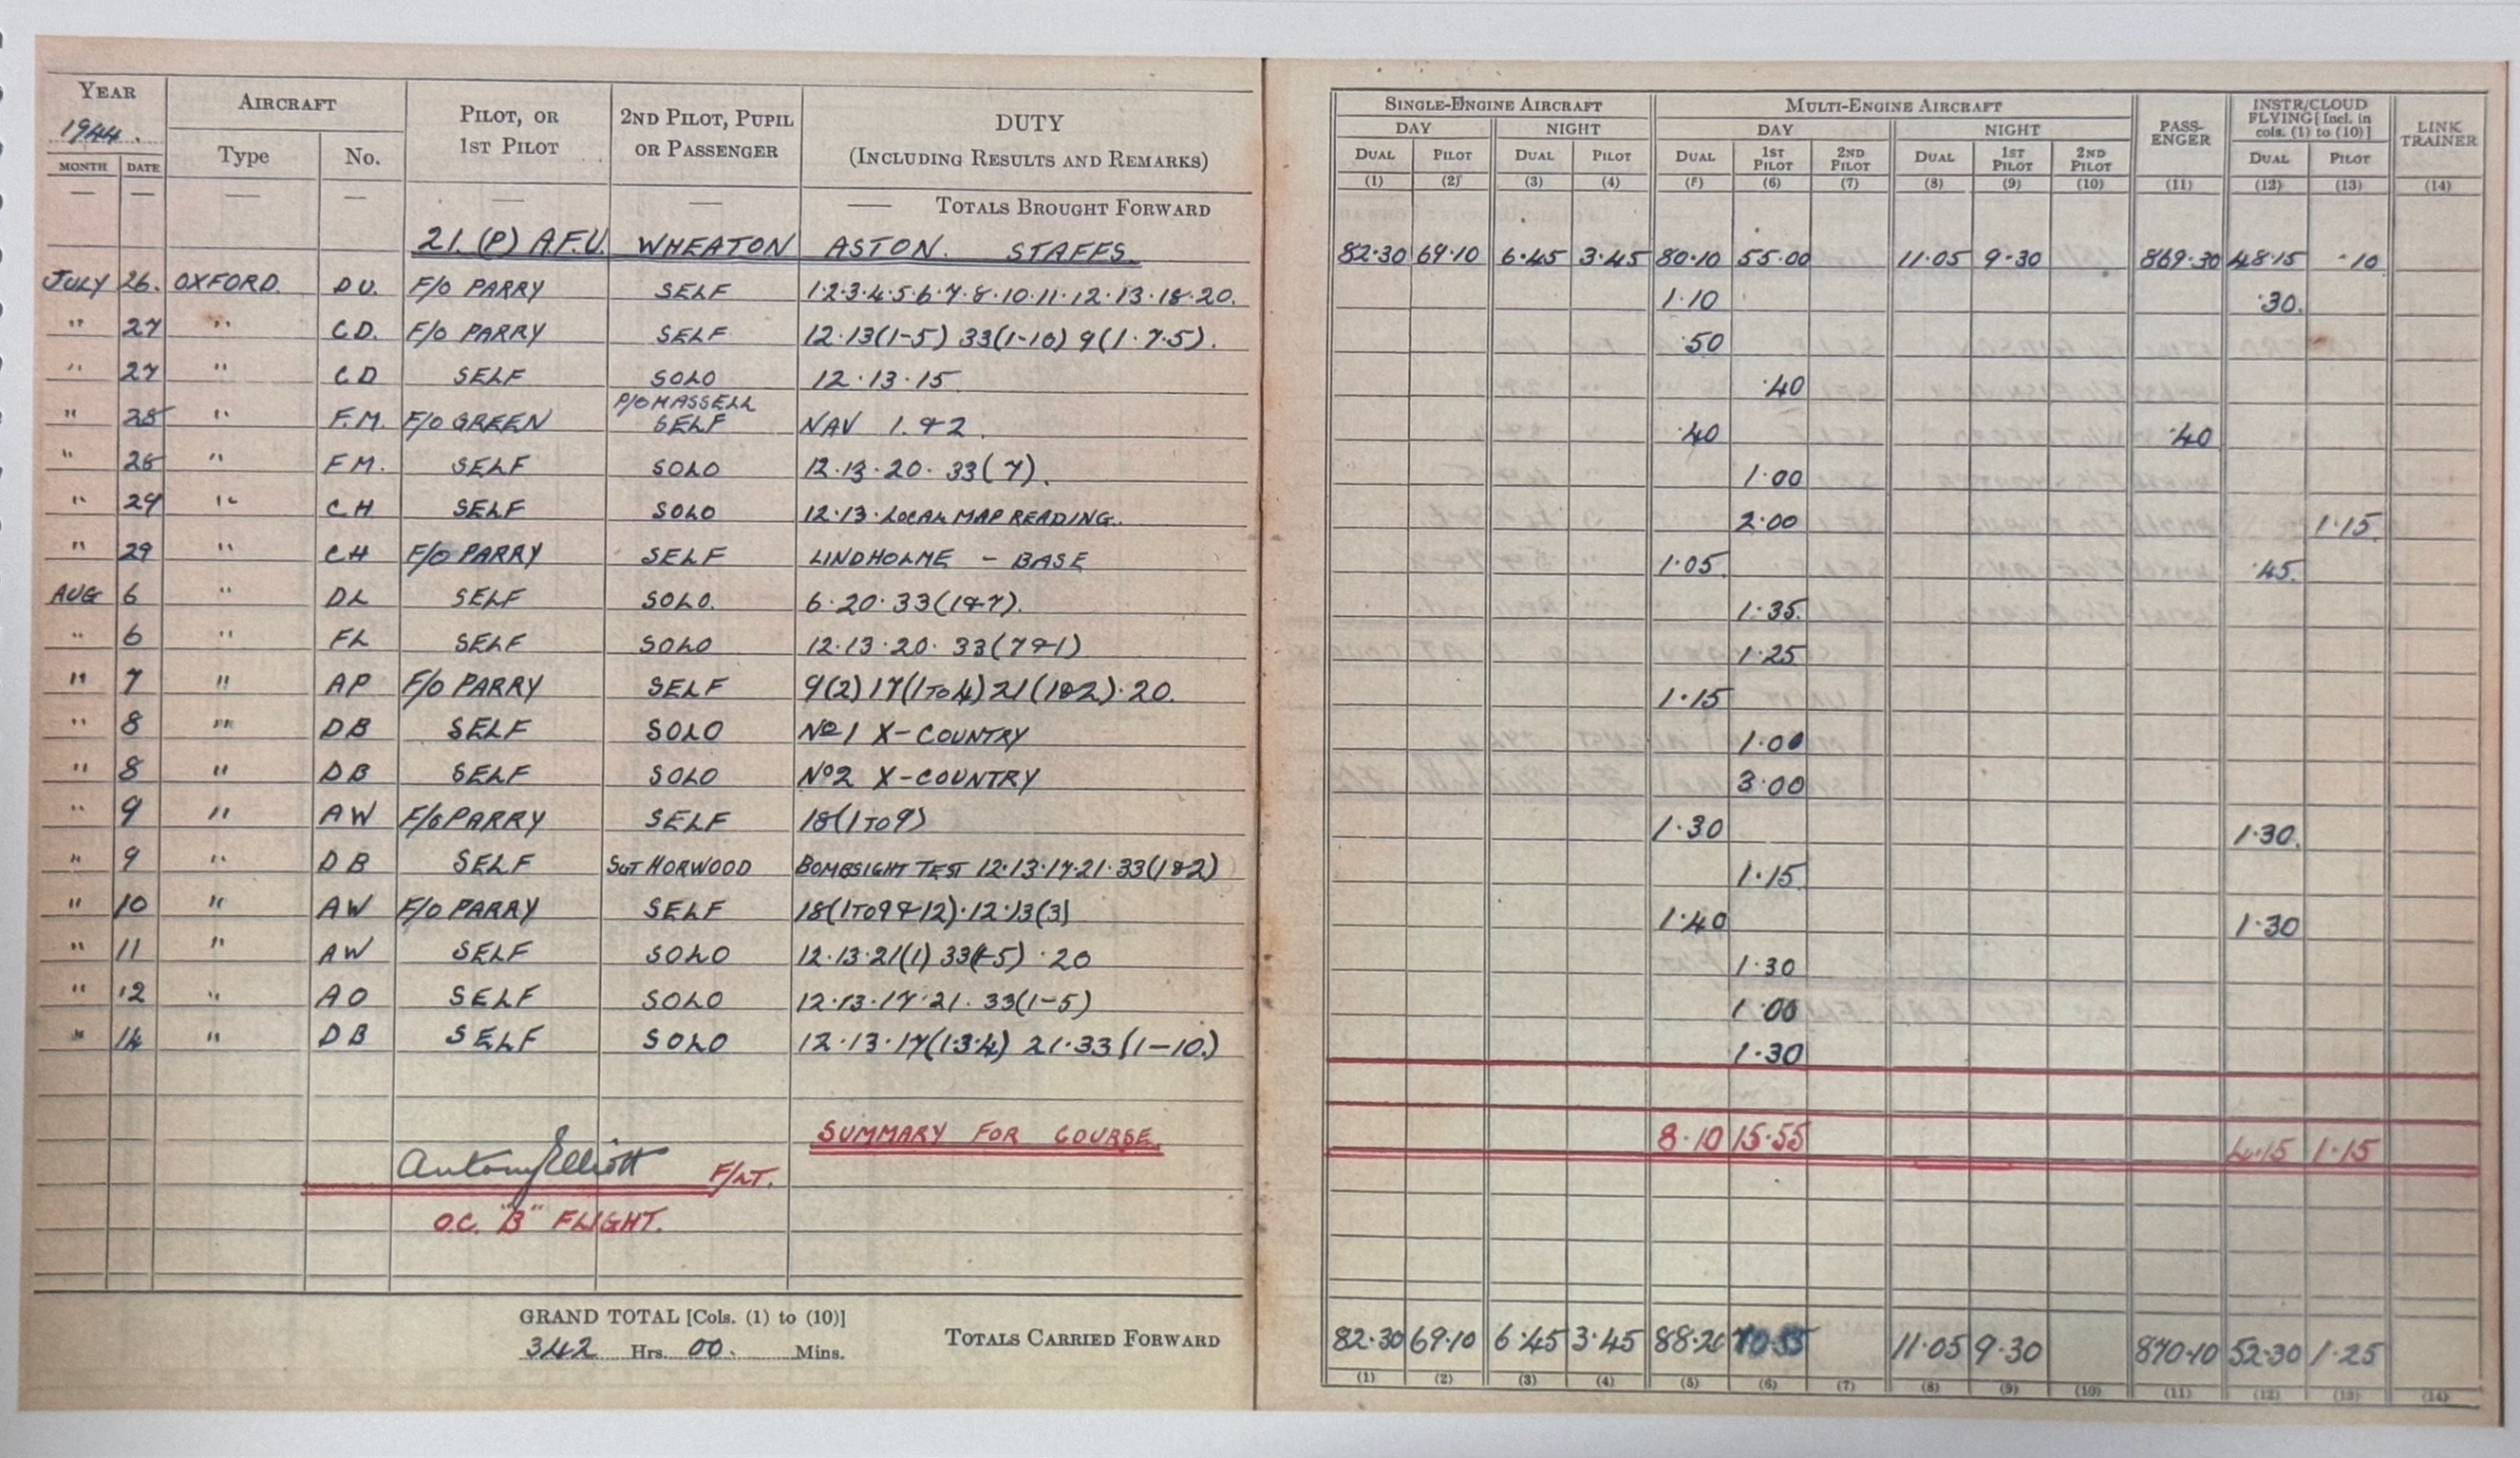 YEAR AIRCRAFT PILOT, OR 1ST PILOT 2ND PILOT, PUPIL OR PASSENGER DUTY (INCLUDING RESULTS AND REMARKS) SINGLE-ENGINE AIRCRAFT MULTI-ENGINE AIRCRAFT PASSENGER INSTR/CLOUD FLYING [Incl. in cols. (1) to (10)] LINK TRAINER
1944. DAY NIGHT DAY NIGHT
MONTH DATE Type No. DUAL PILOT DUAL PILOT DUAL 1ST PILOT 2ND PILOT DUAL 1ST PILOT 2ND PILOT DUAL PILOT
(1) (2) (3) (4) (5) (6) (7) (8) (9) (10) (11) (12) (13) (14)
— — — — — — — TOTALS BROUGHT FORWARD
21. (P) A.F.U. WHEATON ASTON. STAFFS. 82·30 69·10 6·45 3·45 80·10 55·00 11·05 9·30 869·30 48·15 ·10
JULY 26. OXFORD. DU. F/O PARRY SELF 1·2·3·4·5·6·7·8·10·11·12·13·18·20. 1·10 ·30.
" 27 " CD. F/O PARRY SELF 12·13(1-5) 33(1-10) 9(1·7·5). ·50
" 27 " CD SELF SOLO 12·13·15 ·40
P/O MASSELL
" 28 " F.M. F/O GREEN SELF NAV 1. & 2. ·40 ·40
" 28 " FM. SELF SOLO 12·13·20· 33(7). 1·00
" 29 " CH SELF SOLO 12·13·LOCAL MAP READING. 2·00 1·15.
" 29 " CH F/O PARRY SELF LINDHOLME - BASE 1·05. ·45.
AUG 6 " DL SELF SOLO. 6·20·33(1&7). 1·35.
" 6 " FL SELF SOLO 12·13·20· 33(7&1) 1·25
" 7 " AP F/O PARRY SELF 9(2) 17(1TO4) 21(1&2)·20. 1·15
" 8 " DB SELF SOLO No1 X-COUNTRY 1·00
" 8 " DB SELF SOLO No2 X-COUNTRY 3·00
" 9 " AW F/O PARRY SELF 18(1TO9) 1·30 1·30.
" 9 " DB SELF SGT HORWOOD BOMBSIGHT TEST 12·13·17·21·33(1&2) 1·15.
" 10 " AW F/O PARRY SELF 18(1TO9&12)·12·13(3) 1·40 1·30
" 11 " AW SELF SOLO 12·13·21(1) 33(1-5) ·20 1·30
" 12 " AO SELF SOLO 12·13·17·21. 33(1-5) 1·00
" 14 " DB SELF SOLO 12·13·17(1·3·4) 21·33(1-10.) 1·30
SUMMARY FOR COURSE. 8·10 15·55 4·15 1·15
Antony Elliott F/LT.
O.C. "B" FLIGHT.
GRAND TOTAL [Cols. (1) to (10)]
342 Hrs. 00. Mins. TOTALS CARRIED FORWARD 82·30 69·10 6·45 3·45 88·20 70·55 11·05 9·30 870·10 52·30 1·25
(1) (2) (3) (4) (5) (6) (7) (8) (9) (10) (11) (12) (13) (14)